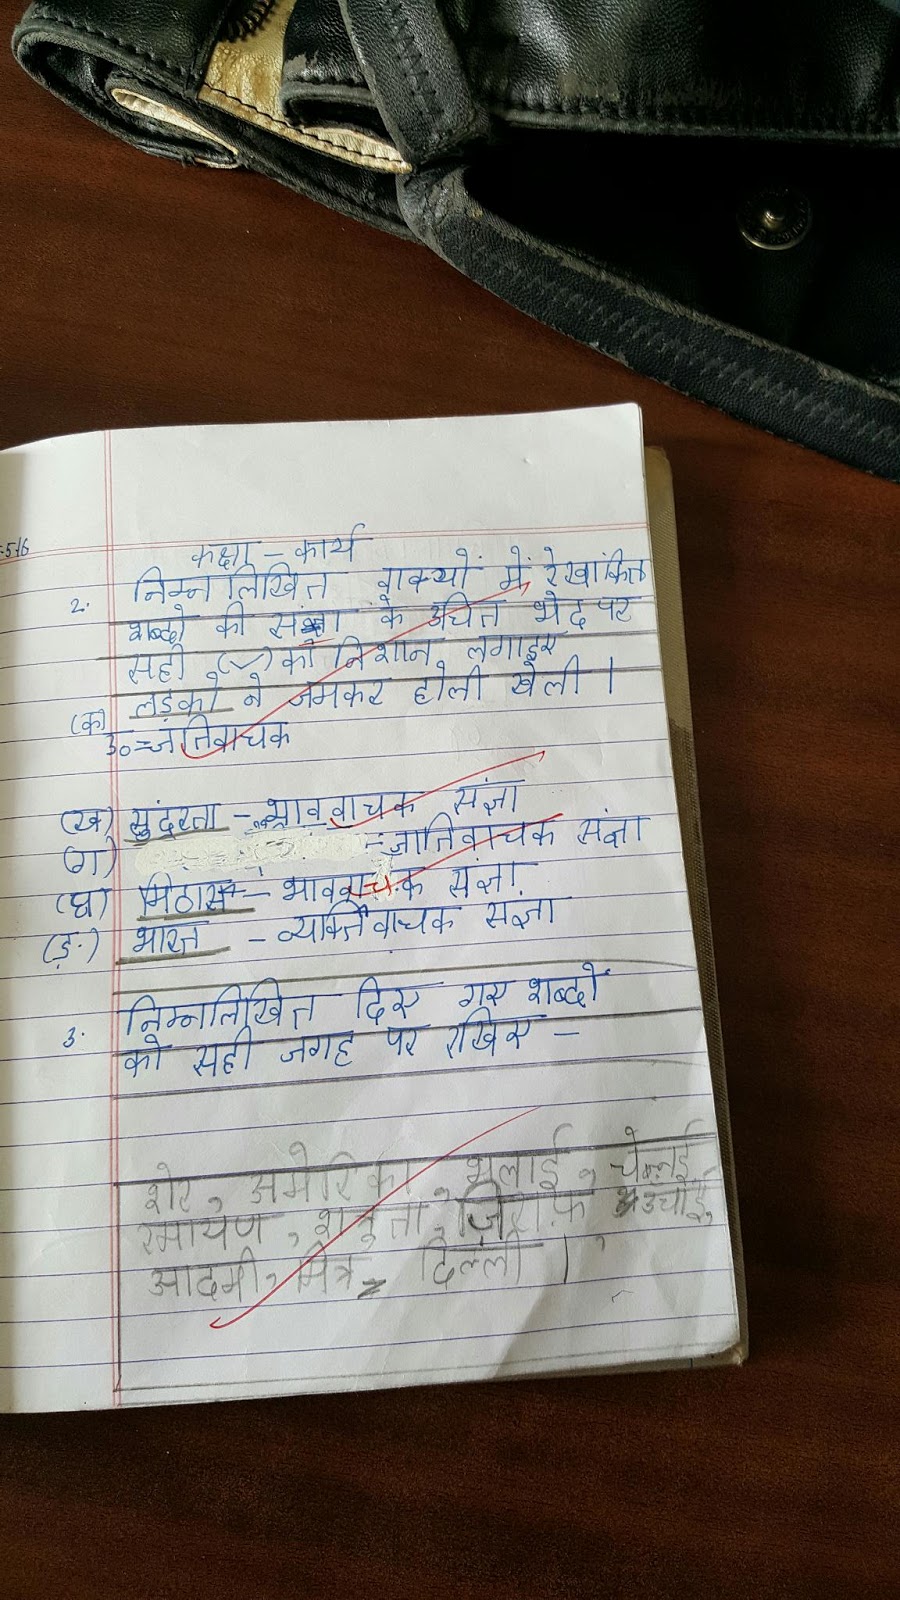 कक्षा - कार्य
2. निम्नलिखित वाक्यों में रेखांकित
शब्दो की संज्ञा के उचित भेद पर
सही (✓) का निशान लगाइए
(क) लड़को ने जमकर होली खेली।
उ०=जातिवाचक
(ख) सुंदरता - भाववाचक संज्ञा
(ग) - जातिवाचक संज्ञा
(घ) मिठास - भाववाचक संज्ञा
(ड़·) भारत - व्यक्तिवाचक संज्ञा
3. निम्नलिखित दिए गए शब्दों
को सही जगह पर रखिए -
शेर, अमेरिका, भलाई, चेन्नई,
रमायण, शत्रुता, जिराफ़, ऊचाई,
आदमी, मित्र, दिल्ली।